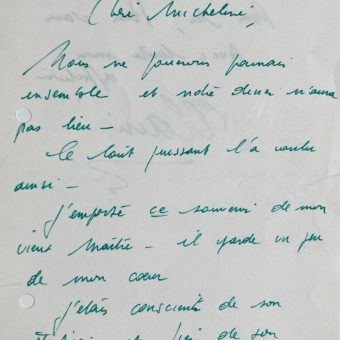 Cher Micheline,
Nous ne pourrons jamais
ensemble et notre diner n'aura
pas lieu -
Le tout puissant l'a voulu
ainsi -
J'emporte ce souvenir de mon
vieux Maître - il garde un peu
de mon cœur
J'étais conscient de son
de son